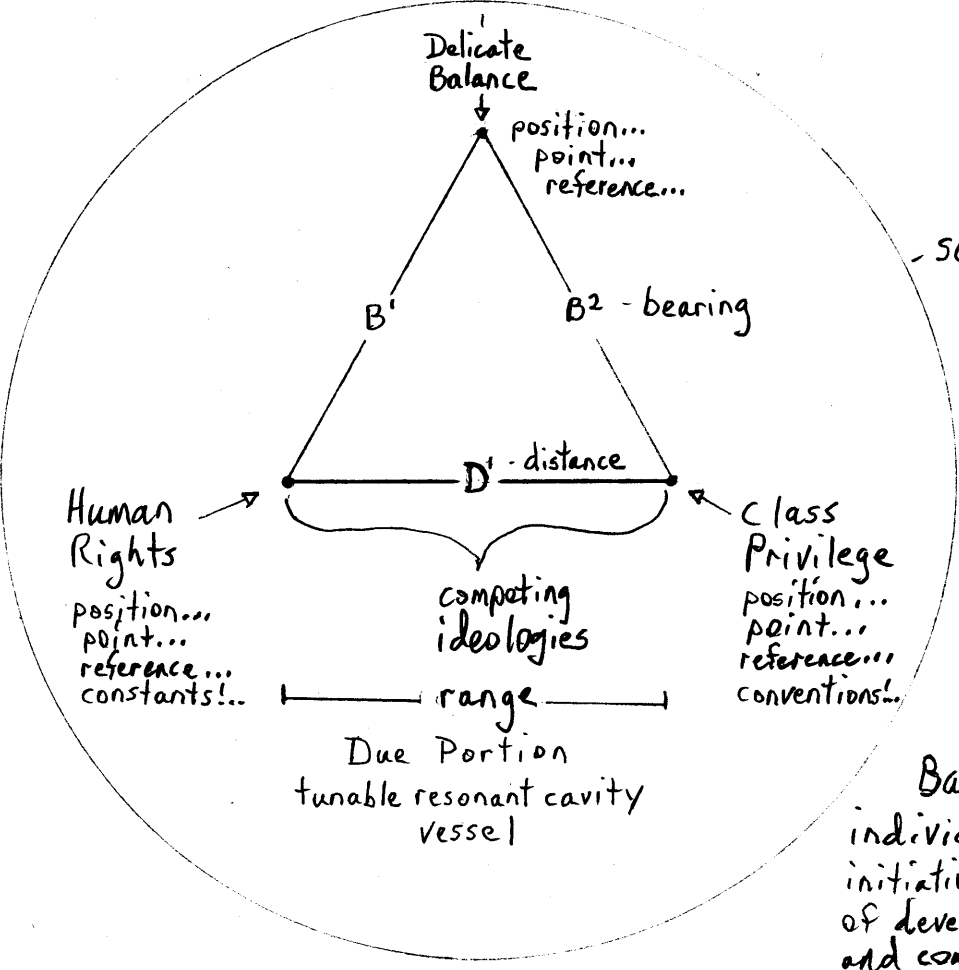 Delicate
Balance
position...
point...
reference...
B¹
B² - bearing
D¹ - distance
Human
Rights
position...
point...
reference...
constants!..
Class
Privilege
position...
point...
reference...
conventions!..
competing
ideologies
range
Due Portion
tunable resonant cavity
vessel
of
and